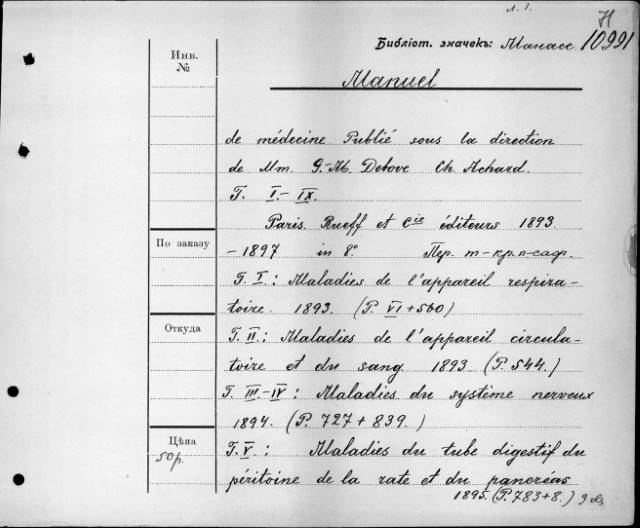 л. 1.
Н
Библіот. значекъ: Манасс. 10991
Инв.
№
Manuel
de médecine Publié sous la direction
de Mm. G.-M. Debove Ch Achard.
T. I.- IX.
Paris. Rueff et Cie éditeurs 1893
По заказу
-1897 in 8°. Пер. т-кр. п-саф.
T. I.: Maladies de l'appareil respira-
toire. 1893. (P. VI + 560)
Откуда
T. II.: Maladies de l'appareil circula-
toire et du sang 1893. (P. 544.)
T. III.-IV.: Maladies du système nerveux
1894. (P. 727 + 839.)
Цѣна
50р.
T. V.: Maladies du tube digestif du
péritoine de la rate et du pancréas
1895. (P. 783+8.) 9 vls